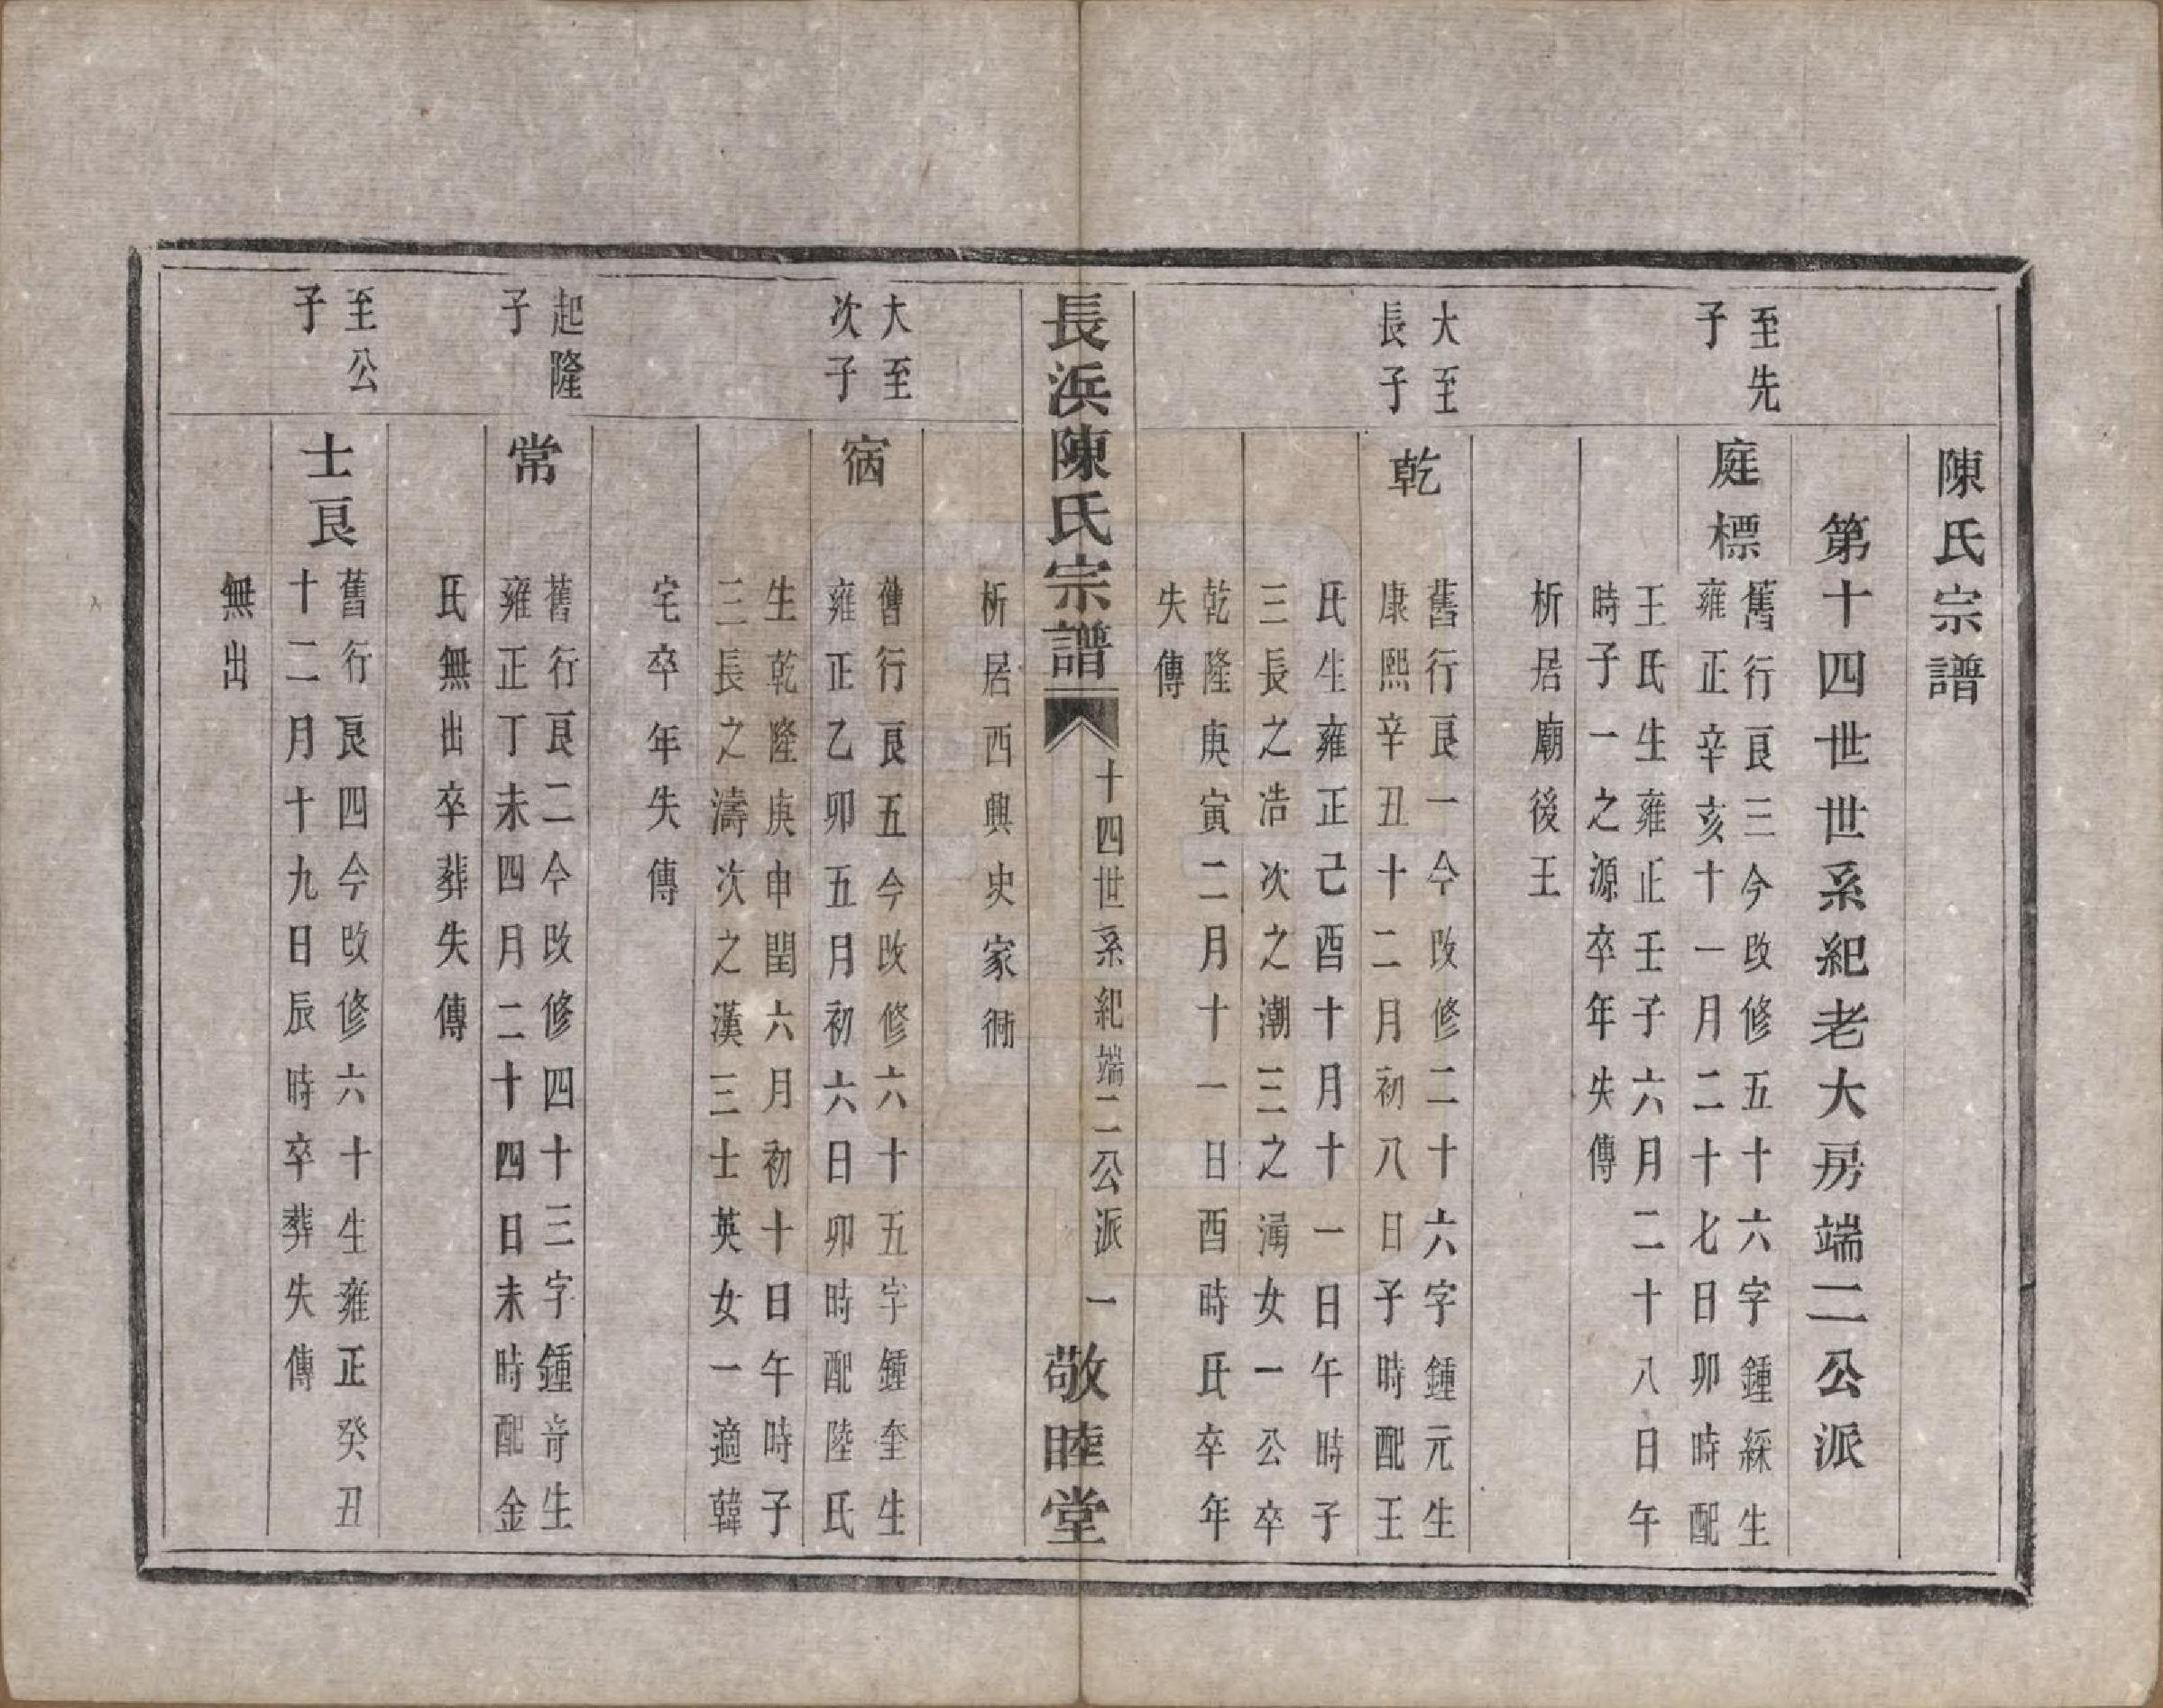 陳氏宗譜
第十四世世系紀老大房端二公派
至先
子
庭標
舊行艮三今改修五十六字鍾綵生
雍正辛亥十一月二十七日卯時配
王氏生雍正壬子六月二十八日午
時子一之源卒年失傳
析居廟後王
大至
長子
乾
舊行艮一今改修二十六字鍾元生
康熙辛丑十二月初八日子時配王
氏生雍正己酉十月十一日午時子
三長之浩次之潮三之澷女一公卒
乾隆庚寅二月十一日酉時氏卒年
失傳
長浜陳氏宗譜
十四世系紀端二公派 一
敬睦堂
析居西興史家衖
大至
次子
㝛
舊行艮五今改修六十五字鍾奎生
雍正乙卯五月初六日卯時配陸氏
生乾隆庚申閏六月初十日午時子
三長之濤次之漢三士英女一適韓
宅卒年失傳
起隆
子
常
舊行艮二今改修四十三字鍾竒生
雍正丁未四月二十四日未時配金
氏無出卒葬失傳
至公
子
士艮
舊行艮四今改修六十生雍正癸丑
十二月十九日辰時卒葬失傳
無出